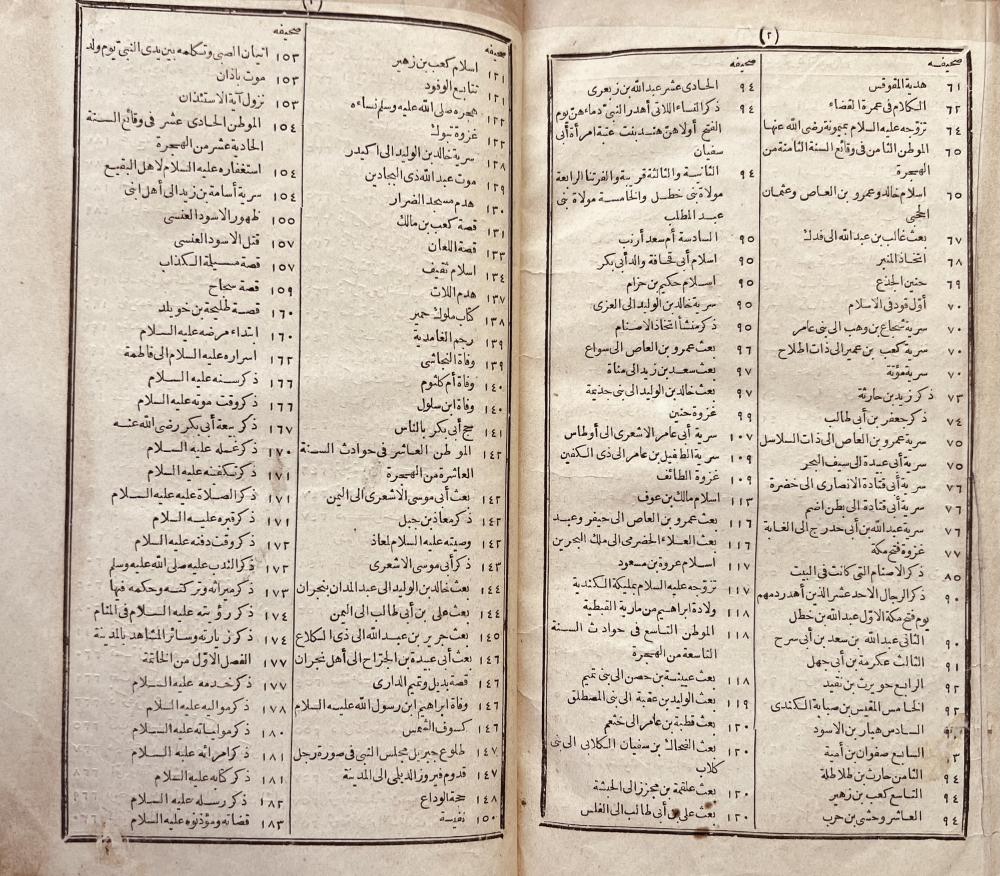 (٢)
صحيفه
٦١ هدية المقوقس
٦٢ الكلام فى عمرة القضاء
٦٤ تزوّجه عليه السلام بميمونة رضى الله عنها
٦٥ الموطن الثامن فى وقائع السنة الثامنة من
الهجرة
٦٥ اسلام خالد وعمرو بن العاص وعثمان
الحجبى
٦٧ بعث غالب بن عبد الله الى فدك
٦٨ اتخاذ المنبر
٦٩ حنين الجذع
٧٠ أوّل قود فى الاسلام
٧٠ سرية شجاع بن وهب الى بنى عامر
٧٠ سرية كعب بن عمير الى ذات اطلاح
٧٠ سرية مؤتة
٧٣ ذكر زيد بن حارثة
٧٤ ذكر جعفر بن أبى طالب
٧٥ سرية عمرو بن العاص الى ذات السلاسل
٧٥ سرية أبى عبيدة الى سيف البحر
٧٦ سرية أبى قتادة الانصارى الى خضرة
٧٦ سرية أبى قتادة الى بطن اضم
٧٦ سرية عبد الله بن أبى حدرج الى الغابة
٧٧ غزوة فتح مكة
٨٥ ذكر الاصنام التى كانت فى البيت
٩٠ ذكر الرجال الاحد عشر الذين أهدر دمهم
يوم فتح مكة الاوّل عبد الله بن خطل
٩٠ الثانى عبد الله بن سعد بن أبى سرح
٩١ الثالث عكرمة بن أبى جهل
٩٢ الرابع حويرث بن نقيد
٩٢ الخامس المقيس بن صبابة الكندى
السادس هبار بن الاسود
٣ السابع صفوان بن أمية
٩٤ الثامن حارث بن طلاطلة
٩٤ التاسع كعب بن زهير
٩٤ العاشر وحشى بن حرب
صحيفه
٩٤ الحادى عشر عبد الله بن زبعرى
٩٤ ذكر النساء اللاتى أهدر النبىّ دماءهنّ يوم
الفتح أولاهنّ هند بنت عتبة امرأة أبى
سفيان
٩٤ الثانية والثالثة قريبة والفرتنا الرابعة
مولاة بنى خطل والخامسة مولاة بنى
عبد المطلب
٩٥ السادسة أم سعد أرنب
٩٥ اسلام أبى قحافة والد أبى بكر
٩٥ اسلام حكيم بن حزام
٩٥ سرية خالد بن الوليد الى العزى
٩٥ ذكر منشأ اتخاذ الاصنام
٩٦ بعث عمرو بن العاص الى سواع
٩٧ بعث سعد بن زيد الى مناة
٩٧ بعث خالد بن الوليد الى بنى جذيمة
٩٩ غزوة حنين
١٠٧ سرية أبى عامر الاشعرى الى أوطاس
١٠٩ سرية الطفيل بن عامر الى ذى الكفين
١٠٩ غزوة الطائف
١١٣ اسلام مالك بن عوف
١١٦ بعث عمرو بن العاص الى جيفر وعبد
١١٦ بعث العلاء الحضرمى الى ملك البحرين
١١٧ اسلام عروة بن مسعود
١١٧ تزوّجه عليه السلام بمليكة الكندية
١١٨ ولادة ابراهيم من مارية القبطية
١١٨ الموطن التاسع فى حوادث السنة
التاسعة من الهجرة
١١٨ بعث عيينة بن حصن الى بنى تميم
١١٩ بعث الوليد بن عقبة الى بنى المصطلق
١٢٠ بعث قطبة بن عامر الى خثعم
١٢٠ بعث الضحاك بن سفيان الكلابى الى بنى
كلاب
١٢٠ بعث علقمة بن مجزز الى الحبشة
١٢٠ بعث على بن أبى طالب الى الفلس
صحيفه
١٢١ اسلام كعب بن زهير
١٢١ تتابع الوفود
١٢٢ هجره صلى الله عليه وسلم نساءه
١٢٢ غزوة تبوك
١٢٨ سرية خالد بن الوليد الى اكيدر
١٢٩ موت عبد الله ذى البجادين
١٣٠ هدم مسجد الضرار
١٣١ قصة كعب بن مالك
١٣٣ قصة اللعان
١٣٤ اسلام ثقيف
١٣٧ هدم اللات
١٣٨ كتاب ملوك حمير
١٣٩ رجم الغامدية
١٣٩ وفاة النجاشى
١٤٠ وفاة أم كلثوم
١٤٠ وفاة ابن سلول
١٤١ حج أبى بكر بالناس
١٤٢ الموطن العاشر فى حوادث السنة
العاشرة من الهجرة
١٤٢ بعث أبى موسى الاشعرى الى اليمن
١٤٢ ذكر معاذ بن جبل
١٤٢ وصيته عليه السلام لمعاذ
١٤٣ ذكر أبى موسى الاشعرى
١٤٤ بعث خالد بن الوليد الى عبد المدان بنجران
١٤٤ بعث على بن أبى طالب الى اليمن
١٤٥ بعث جرير بن عبد الله الى ذى الكلاع
١٤٦ بعث أبى عبيدة بن الجرّاح الى أهل نجران
١٤٦ قصة بديل وتميم الدارى
١٤٦ وفاة ابراهيم ابن رسول الله عليه السلام
١٤٦ كسوف الشمس
١٤٧ طلوع جبريل مجلس النبى فى صورة رجل
١٤٧ قدوم فيروز الديلى الى المدينة
١٤٨ حجة الوداع
١٥٠ نفيسة
صحيفه
١٥٣ اتيان الصبى وتكلمه بين يدى النبىّ يوم ولد
١٥٣ موت باذان
١٥٣ نزول آية الاستئذان
١٥٤ الموطن الحادى عشر فى وقائع السنة
الحادية عشر من الهجرة
١٥٤ استغفاره عليه السلام لاهل البقيع
١٥٤ سرية أسامة بن زيد الى أهل ابنى
١٥٥ ظهور الاسود العنسى
١٥٧ قتل الاسود العنسى
١٥٧ قصة مسيلة الكذاب
١٥٩ قصة سجاح
١٦٠ قصة طليحة بن خويلد
١٦٠ ابتداء مرضه عليه السلام
١٦٢ اسراره عليه السلام الى فاطمة
١٦٦ ذكر سنه عليه السلام
١٦٦ ذكر وقت موته عليه السلام
١٦٧ ذكر بيعة أبى بكر رضى الله عنه
١٧٠ ذكر غسله عليه السلام
١٧١ ذكر تكفينه عليه السلام
١٧١ ذكر الصلاة عليه عليه السلام
١٧١ ذكر قبره عليه السلام
١٧٢ ذكر وقت دفنه عليه السلام
١٧٢ ذكر الندب عليه صلى الله عليه وسلم
١٧٣ ذكر ميراثه وتركته وحكمه فيها
١٧٤ ذكر رؤيته عليه السلام فى المنام
١٧٤ ذكر زيارته وسائر المشاهد بالمدينة
١٧٧ الفصل الاوّل من الخاتمة
١٧٧ ذكر خدمه عليه السلام
١٧٨ ذكر مواليه عليه السلام
١٨٠ ذكر مولياته عليه السلام
١٨١ ذكر امرائه عليه السلام
١٨١ ذكر كتابه عليه السلام
١٨٢ ذكر رسله عليه السلام
١٨٣ قضاته ومؤذنوه عليه السلام